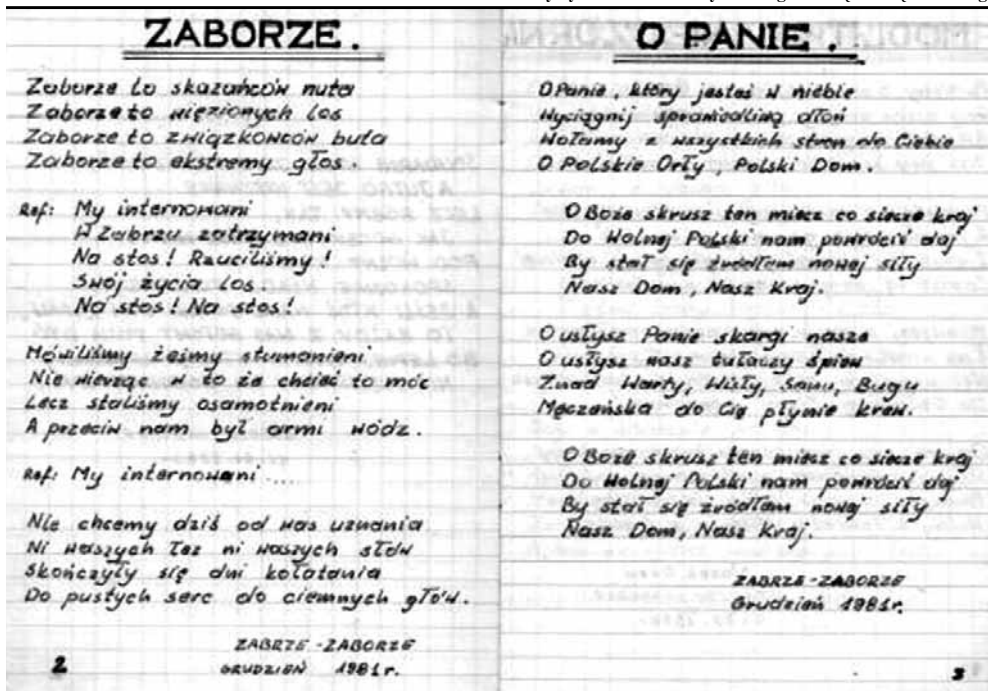 ZABORZE.
Zaborze to skazańców nuta
Zaborze to więzionych los
Zaborze to związkowców buta
Zaborze to ekstremy głos.
Ref: My internowani
W Zabrzu zatrzymani
Na stos! Rzuciliśmy!
Swój życia los
Na stos! Na stos!
Mówiliśmy żeśmy stumanieni
Nie wierząc w to że chcieć to móc
Lecz staliśmy osamotnieni
A przeciw nam był armi wódz.
Ref: My internowani .....
Nie chcemy dziś od was uznania
Ni waszych łez ni waszych słów
Skończyły się dni kołatania
Do pustych serc do ciemnych głów.
ZABRZE-ZABORZE
GRUDZIEŃ 1981r.
2
O PANIE.
O Panie, który jesteś w niebie
Wyciągnij sprawiedliwą dłoń
Wołamy z wszystkich stron do Ciebie
O Polskie Orły, Polski Dom.
O Boże skrusz ten miecz co siecze kraj
Do Wolnej Polski nam powrócić daj
By stał się źródłem nowej siły
Nasz Dom, Nasz Kraj.
O usłysz Panie skargi nasze
O usłysz nasz tułaczy śpiew
Znad Warty, Wisły, Sanu, Bugu
Męczeńska do Cię płynie krew.
O Boże skrusz ten miecz co siecze kraj
Do Wolnej Polski nam powrócić daj
By stał się źródłem nowej siły
Nasz Dom, Nasz Kraj.
ZABRZE-ZABORZE
Grudzień 1981r.
3